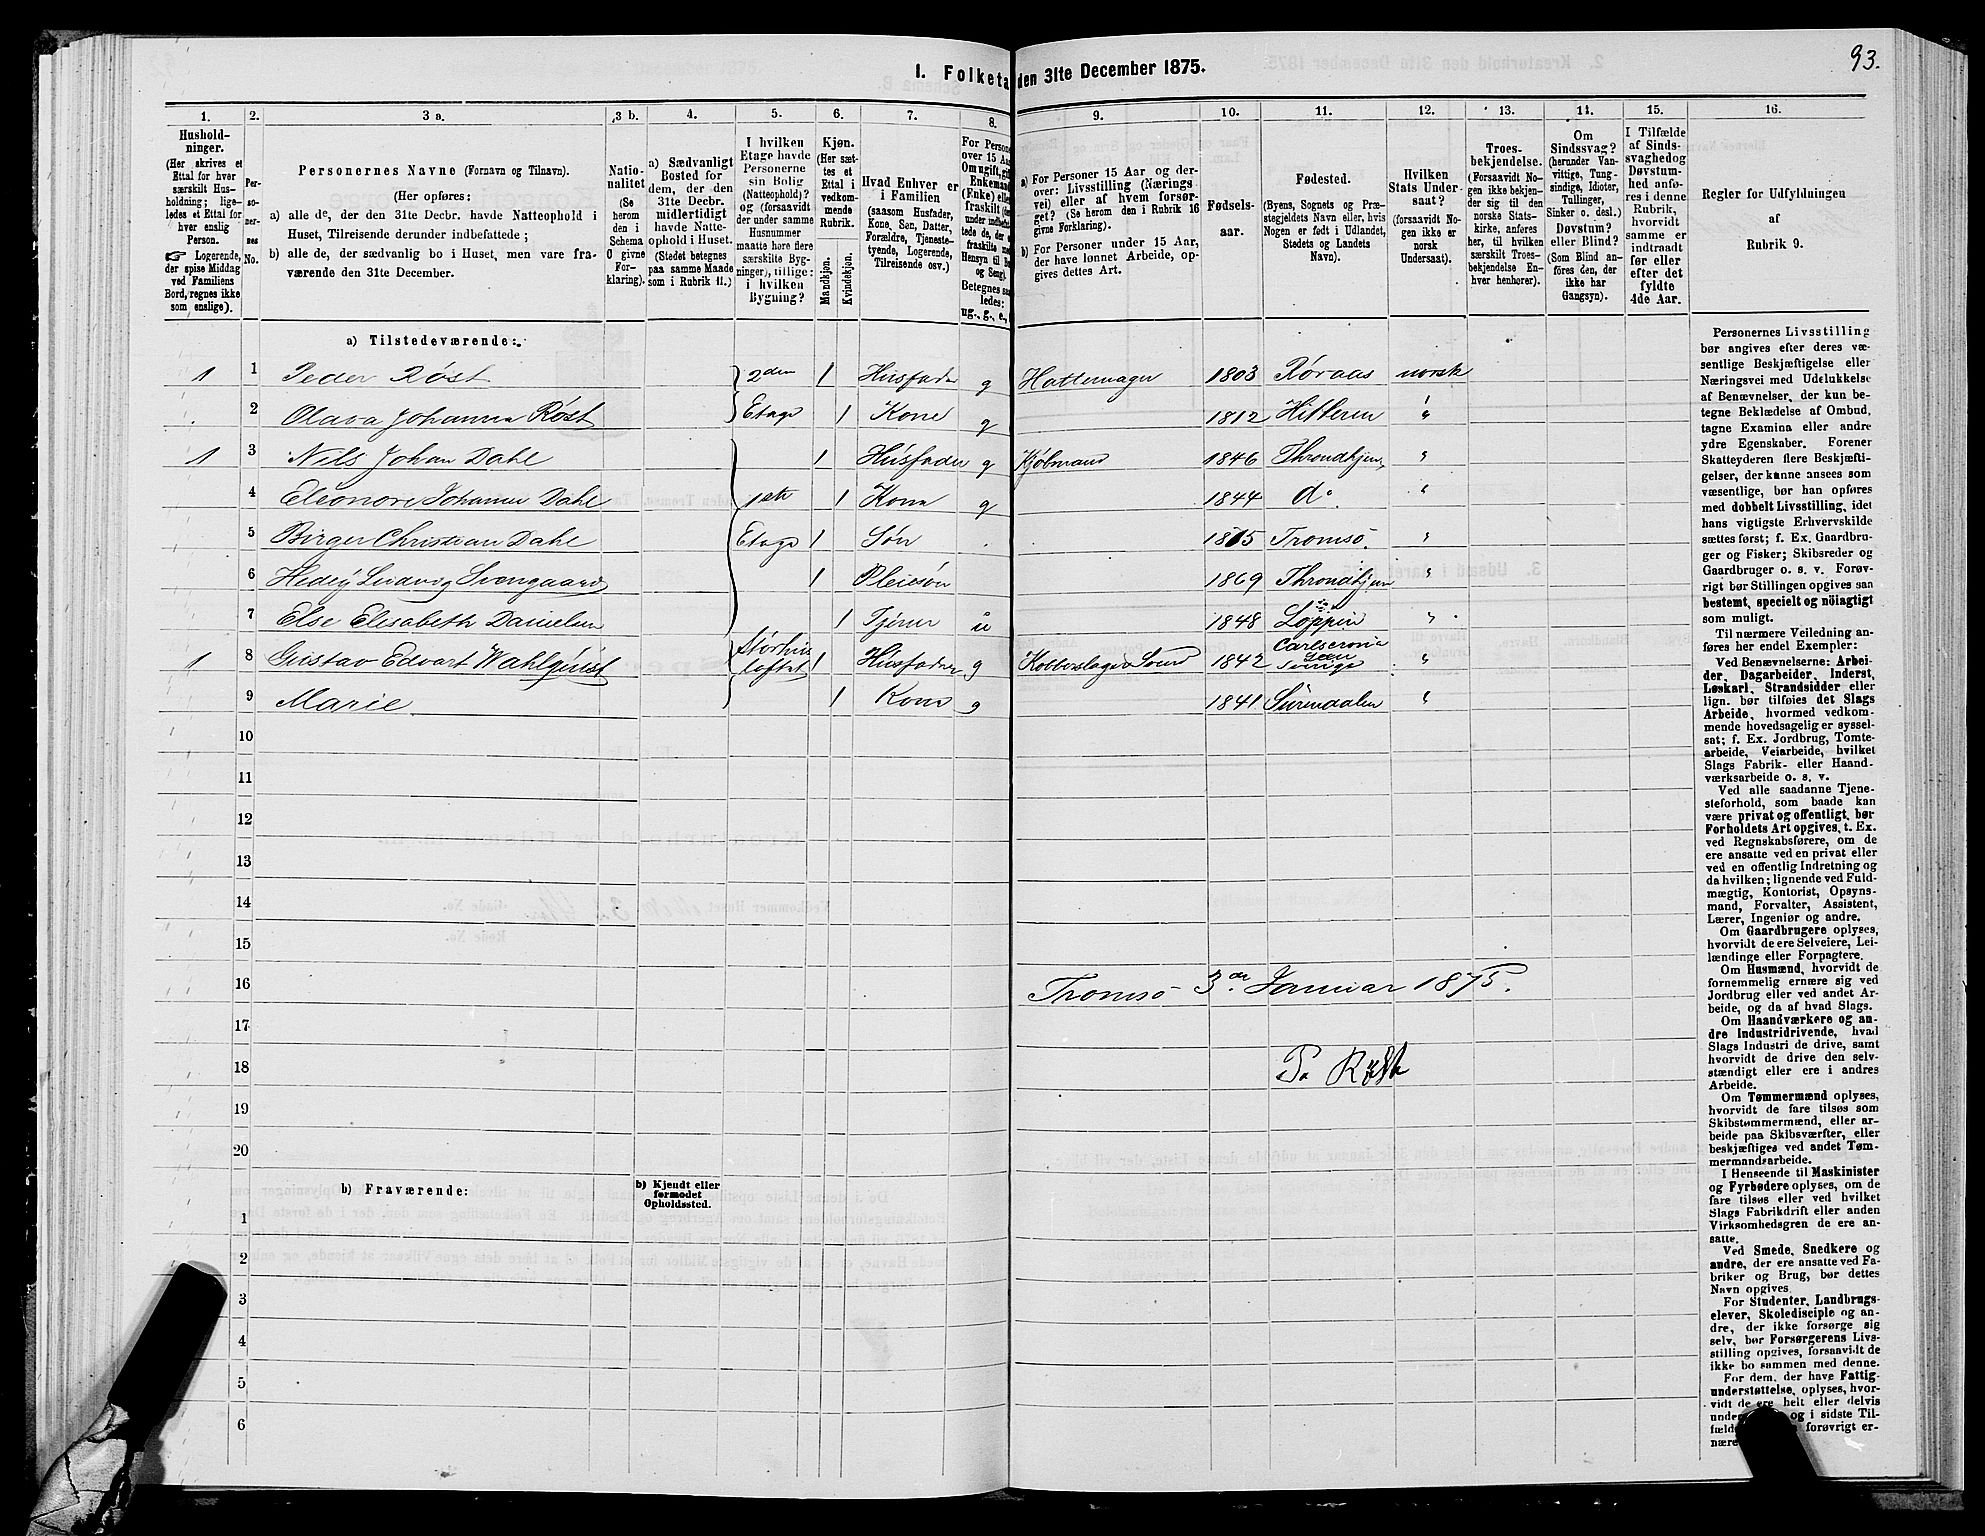 93.
I. Folketa den 31te December 1875.
1. 2. 3 a. 3 b. 4. 5. 6. 7. 8. 9. 10. 11. 12. 13. 14. 15. 16.
Hushold-
ninger.
(Her skrives et
Ettal for hver
særskilt Hus-
holdning; lige-
ledes et Ettal for
hver enslig
Person.
☞ Logerende,
der spise Middag
ved Familiens
Bord, regnes ikke
som enslige).
Per-
so-
ner-
nes
No.
Personernes Navne (Fornavn og Tilnavn).
(Her opføres:
a) alle de, der den 31te Decbr. havde Natteophold i
Huset, Tilreisende derunder indbefattede;
b) alle de, der sædvanlig bo i Huset, men vare fra-
værende den 31te December.
Natio-
nalitet
(Se
herom
den i
Schema
O givne
For-
klaring).
a) Sædvanligt
Bosted for
dem, der den
31te Decbr.
midlertidigt
havde Natte-
ophold i Huset.
(Stedet betegnes
paa samme Maade
som i Rubrik 11.)
I hvilken
Etage havde
Personerne
sin Bolig
(Natteophold)?
og (forsaavidt
der under samme
Husnummer
maatte høre flere
særskilte Byg-
ninger), tillige:
i hvilken
Bygning?
Kjøn.
(Her sæt-
tes et
Ettal i
vedkom-
mende
Rubrik.
Mandkjøn.
Kvindekjøn.
Hvad Enhver er
i Familien
(saasom Husfader,
Kone, Søn, Datter,
Forældre, Tjeneste-
tyende, Logerende,
Tilreisende osv.)
For Persone
over 15 Aa
Om ugift, gif
Enkemand
(Enke) elle
fraskilt (
under indbe
tede de, der
fraskilte me
Hensyn til B
og Seng).
Betegnes saa
ledes:
ug., g., e.,
a) For Personer 15 Aar og der-
over: Livsstilling (Nærings
vei) eller af hvem forsør-
get? (Se herom den i Rubrik 16
givne Forklaring).
b) For Personer under 15 Aar,
der have lønnet Arbeide, op-
gives dettes Art.
Fødsels-
aar.
Fødested.
(Byens, Sognets og Præ-
stegjeldets Navn eller, hvis
Nogen er født i Udlandet,
Stedets og Landets
Navn).
Hvilken
Stats Under-
saat?
(forsaavidt No-
gen ikke er
norsk
Undersaat).
Troes-
bekjendelse.
(Forsaavidt No-
gen ikke bekjen-
der sig til den
norske Stats-
kirke, anføres
her, til hvilken
særskilt Troes-
bekjendelse En-
hver henhører).
Om
Sindssvag?
(herunder Van-
vittige, Tung-
sindige, Idioter,
Tullinger,
Sinker o. desl.)
Døvstum?
eller Blind?
(Som Blind an-
føres den, der
ikke har
Gangsyn).
I Tilfælde
af Sinds-
svaghed og
Døvstum-
hed, anfø-
res i denne
Rubrik,
hvorvidt
samme er
indtraadt
før eller
efter det
fyldte
4de Aar.
Regler for Udfyldningen
af
Rubrik 9.
a) Tilstedeværende:
1 1 Peder Røst 2den 1 Husfader g Hattemager 1803 Røraas norsk
2 Olava Johanna Røst Etage 1 Kone g 1812 Hitteren "
1 3 Nils Johan Dahl 1 Husfader g Kjøbmand 1846 Throndhjem "
4 Eleonore Johanne Dahl 1ste 1 Kone g 1844 do "
5 Birger Christian Dahl Etage 1 Søn 1875 Tromsø "
6 Ludvig Svengaard 1 Pleiesøn 1869 Throndhjem "
7 Else Elisabeth Danielsen 1 Tjener u 1848 Loppen "
1 8 Gustav Edvart Wahlqvist loftet 1 Husfader g Kobberslager Svend 1842 Carlscrona Sverige "
9 Marie 1 Kone g 1841 Surendalen "
10
11
12
13
14
15
16 Tromsø 3de Januar 1875.
17
18 P. Røst
19
20
b) Fraværende:
b) Kjendt eller
formodet
Opholdssted.
1
2
3
4
5
6
Personernes Livsstilling
bør angives efter deres væ-
sentlige Beskjæftigelse eller
Næringsvei med Udelukkelse
af Benævnelser, der kun be-
tegne Beklædelse af Ombud,
tagne Examina eller andre
ydre Egenskaber. Forener
Skatteyderen flere Beskjæfti-
gelser, der kunne ansees som
væsentlige, bør han opføres
med dobbelt Livsstilling, idet
hans vigtigste Erhvervskilde
sættes først; f. Ex. Gaardbru-
ger og Fisker; Skibsreder og
Gaardbruger o. s. v. Forøv-
rigt bør Stillingen opgives saa
bestemt, specielt og nöiagtigt
som muligt.
Til nærmere Veiledning an-
føres her endel Exempler:
Ved Benævnelserne: Arbei-
der, Dagarbeider, Inderst,
Løskarl, Strandsidder eller
lign. bør tilføies det Slags
Arbeide, hvormed vedkom-
mende hovedsagelig er syssel-
sat; f. Ex. Jordbrug, Tomte-
arbeide, Veiarbeide, hvilket
Slags Fabrik- eller Haand-
værksarbeide o. s. v.
Ved alle saadanne Tjene-
steforhold, som baade kan
være privat og offentligt, bør
Forholdets Art opgives, t. Ex.
ved Regnskabsførere, om de
ere ansatte ved en privat eller
ved en offentlig Indretning og
da hvilken; lignende ved Fuld-
mægtig, Kontorist, Opsyns-
mand, Forvalter, Assistent,
Lærer, Ingeniør og andre.
Om Gaardbrugere oplyses,
hvorvidt de ere Selveiere, Lei-
lændinge eller Forpagtere.
Om Husmænd, hvorvidt de
fornemmelig ernære sig ved
Jordbrug eller ved andet Ar-
beide, og da af hvad Slags.
Om Haandværkere og an-
dre Industridrivende, hvad
Slags Industri de drive, samt
hvorvidt de drive den selv-
stændigt eller ere i andres
Arbeide.
Om Tømmermænd oplyses,
hvorvidt de fare tilsøs som
Skibstømmermænd, eller ar-
beide paa Skibsværfter, eller
beskjæftiges ved andet Tøm-
mermandsarbeide.
I Henseende til Maskinister
og Fyrbødere oplyses, om de
fare tilsøs eller ved hvilket
Slags Fabrikdrift eller anden
Virksomhedsgren de ere an-
satte.
Ved Smede, Snedkere og
andre, der ere ansatte ved Fa-
briker og Brug, bør dettes
Navn opgives.
For Studenter, Landbrugs-
elever, Skoledisciple og an-
dre, der ikke forsørge sig
selv, bør Forsørgerens Livs-
stilling opgives, forsaavidt de
ikke bo sammen med denne.
For dem, der have Fattig-
understøttelse, oplyses, hvor-
vidt de ere helt eller delvis
under og i sidste Til-
fælde forøvrigt er-
nære